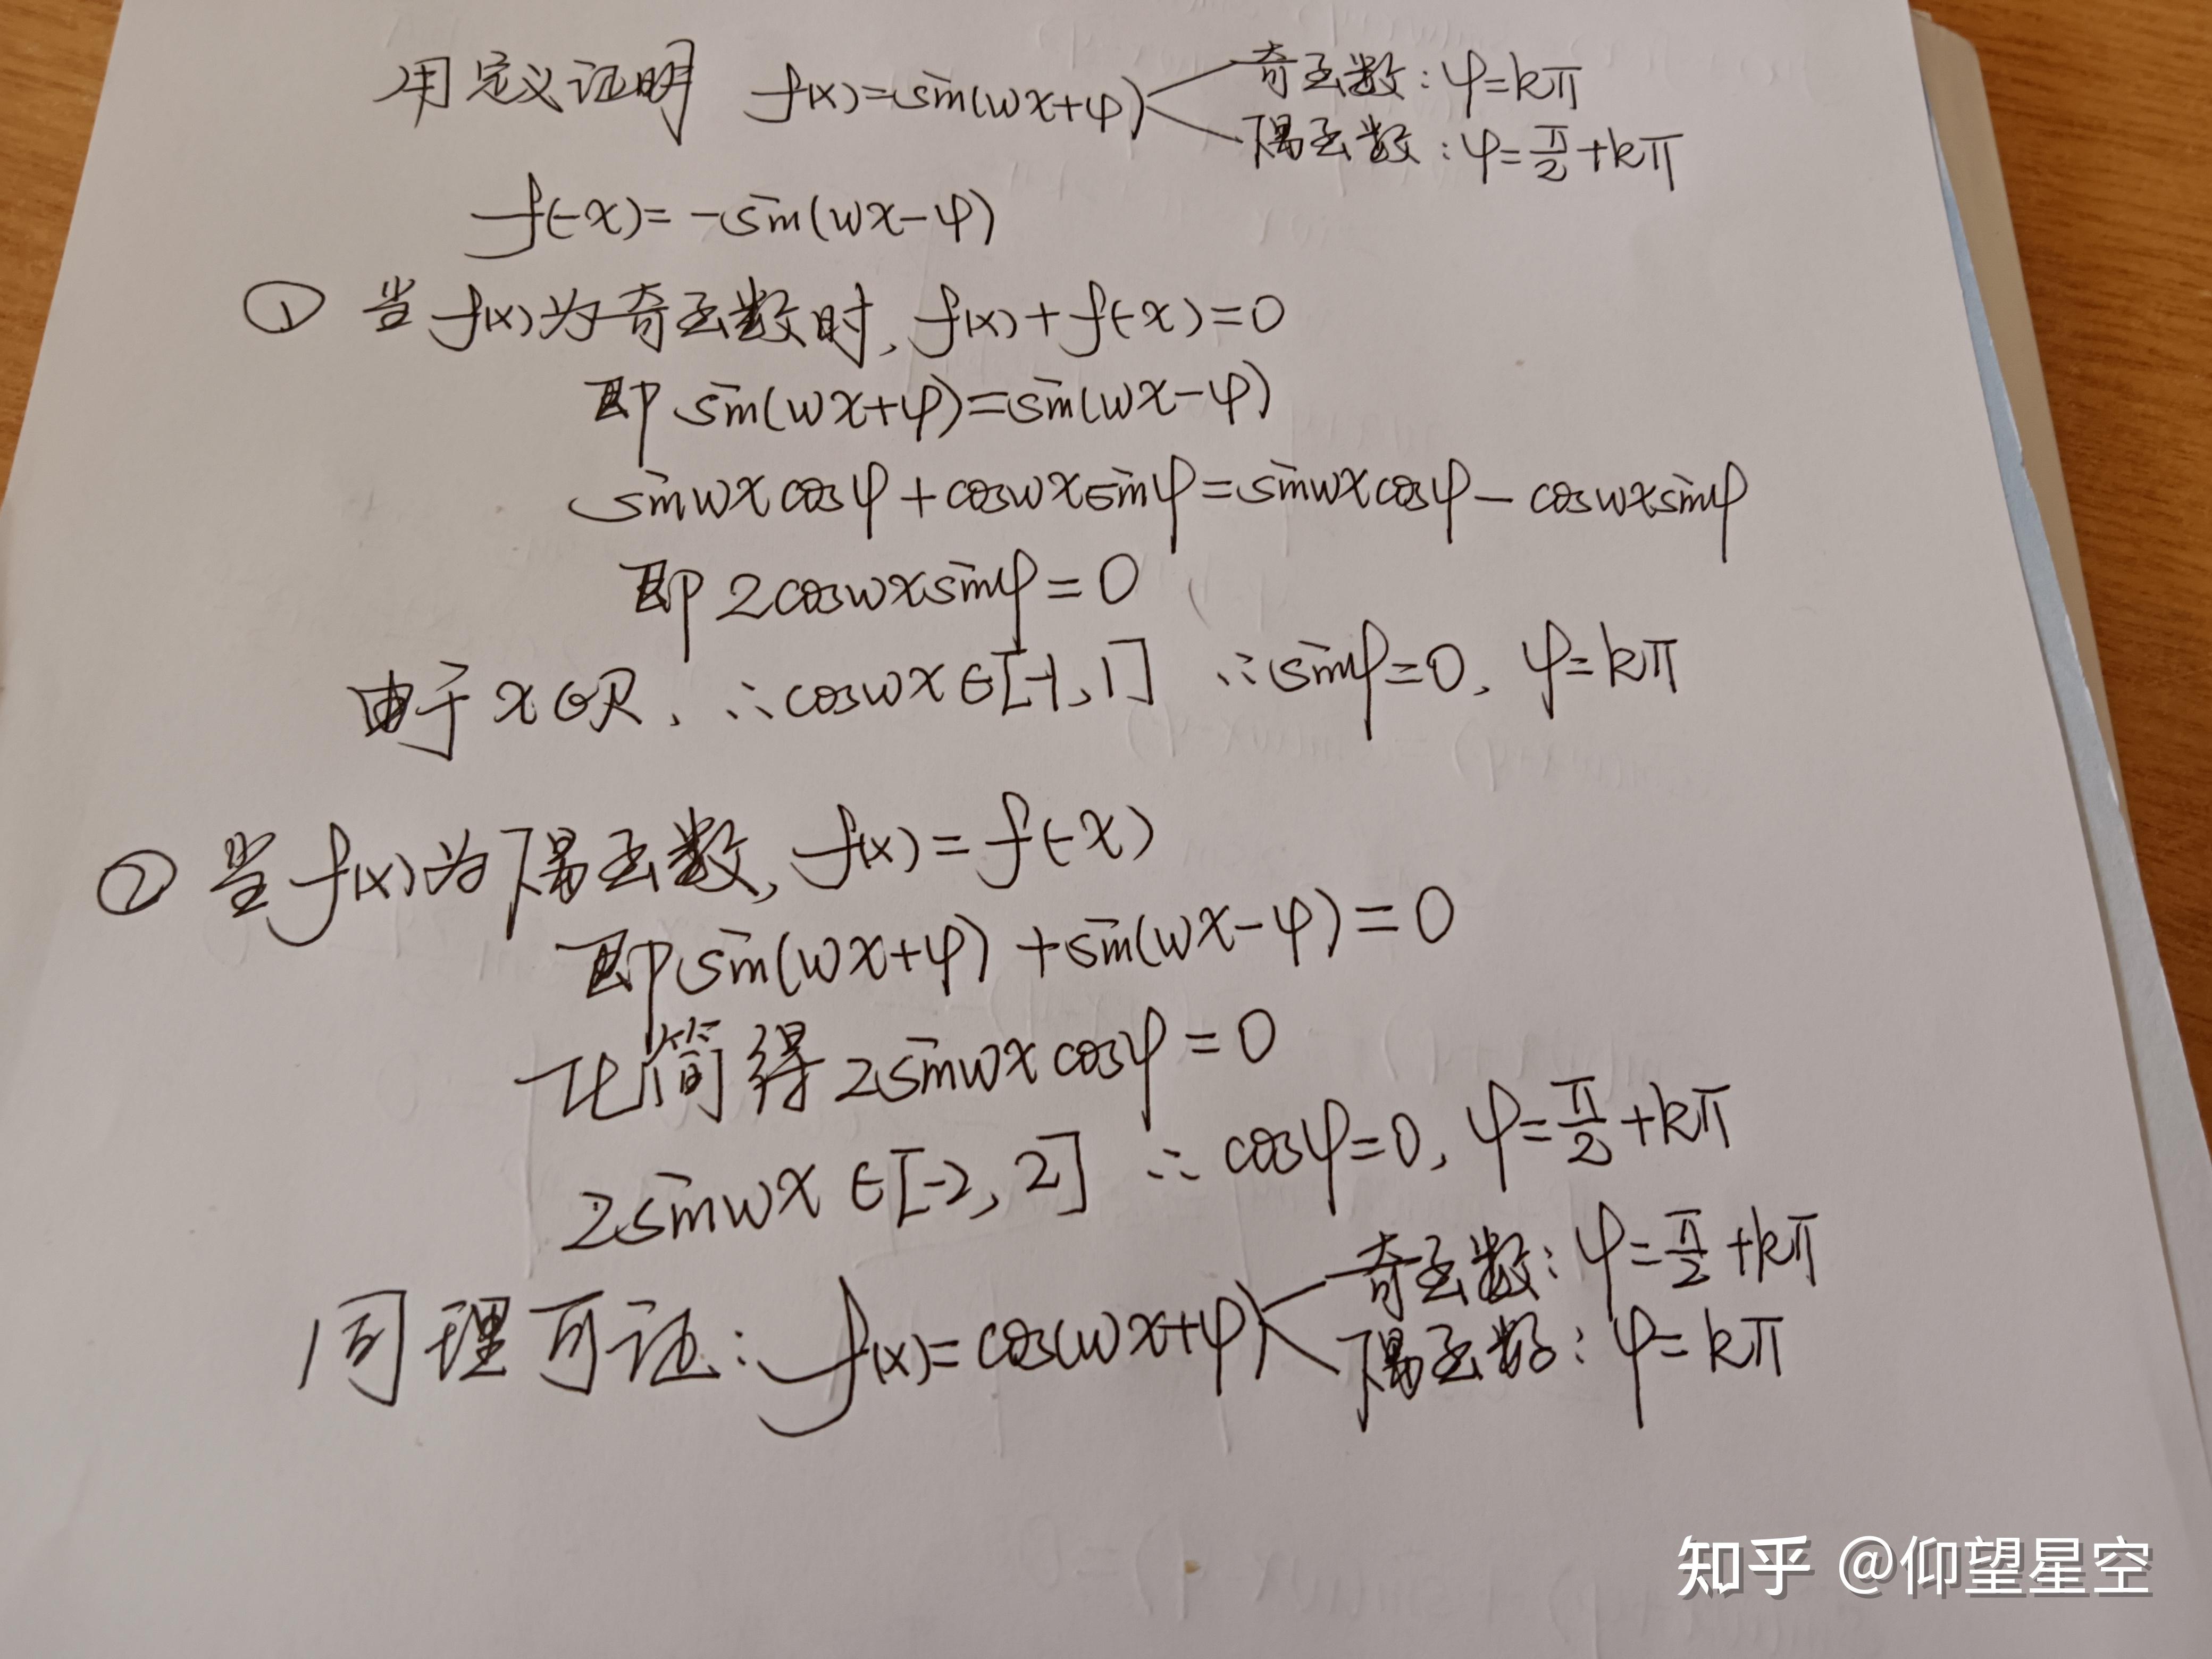 用定义证明 f(x)=sin(wx+φ) 奇函数:φ=kπ
偶函数:φ=π/2+kπ
f(-x)=-sin(wx-φ)
① 当f(x)为奇函数时,f(x)+f(-x)=0
即 sin(wx+φ)=sin(wx-φ)
sinwxcosφ+coswxsinφ=sinwxcosφ-coswxsinφ
即 2coswxsinφ=0
由于x∈R,∴coswx∈[-1,1] ∴sinφ=0,φ=kπ
② 当f(x)为偶函数,f(x)=f(-x)
即sin(wx+φ)+sin(wx-φ)=0
化简得2sinwxcosφ=0
2sinwx∈[-2,2] ∴cosφ=0,φ=π/2+kπ
同理可证:f(x)=cos(wx+φ) 奇函数:φ=π/2+kπ
偶函数:φ=kπ
知乎 @仰望星空